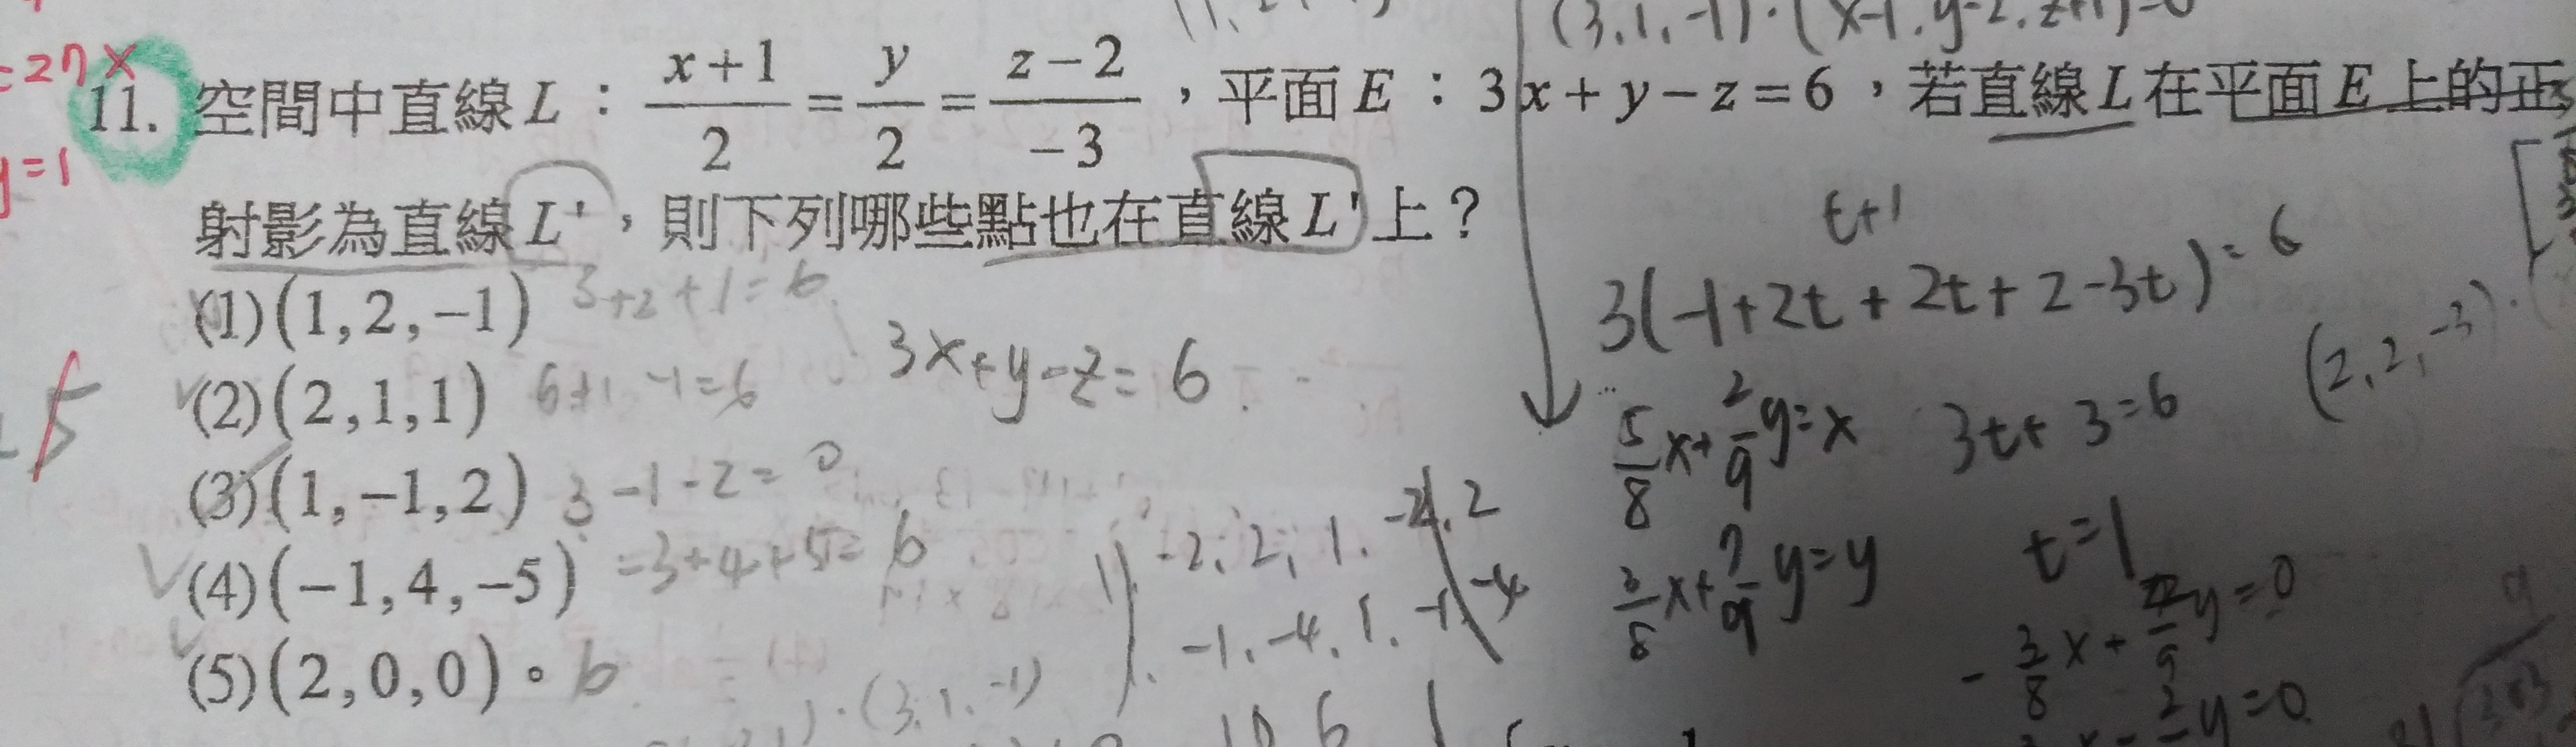 (3,1,-1)·(x-1,y-2,z+1)=0
=27 x
11. 空間中直線 L：\frac{x+1}{2}=\frac{y}{2}=\frac{z-2}{-3}，平面 E：3x+y-z=6，若直線 L 在平面 E 上的正
y=1
射影為直線 L'，則下列哪些點也在直線 L' 上？
t+1
(1)(1,2,-1) 3+2+1=6
3(-1+2t+2t+2-3t)=6
3x+y-z=6
(2,2,-3)·
(2)(2,1,1) 6+1-1=6
5
\frac{5}{8}x+\frac{2}{9}y=x 3t+3=6
(3)(1,-1,2) 3-1-2=0
t=1
(4)(-1,4,-5) =3+4+5=6
-2,2,1,-2,2
-1,-4,1,-1,-4
\frac{3}{8}x+\frac{7}{9}y=y
(5)(2,0,0)。6
·(3,1,-1)